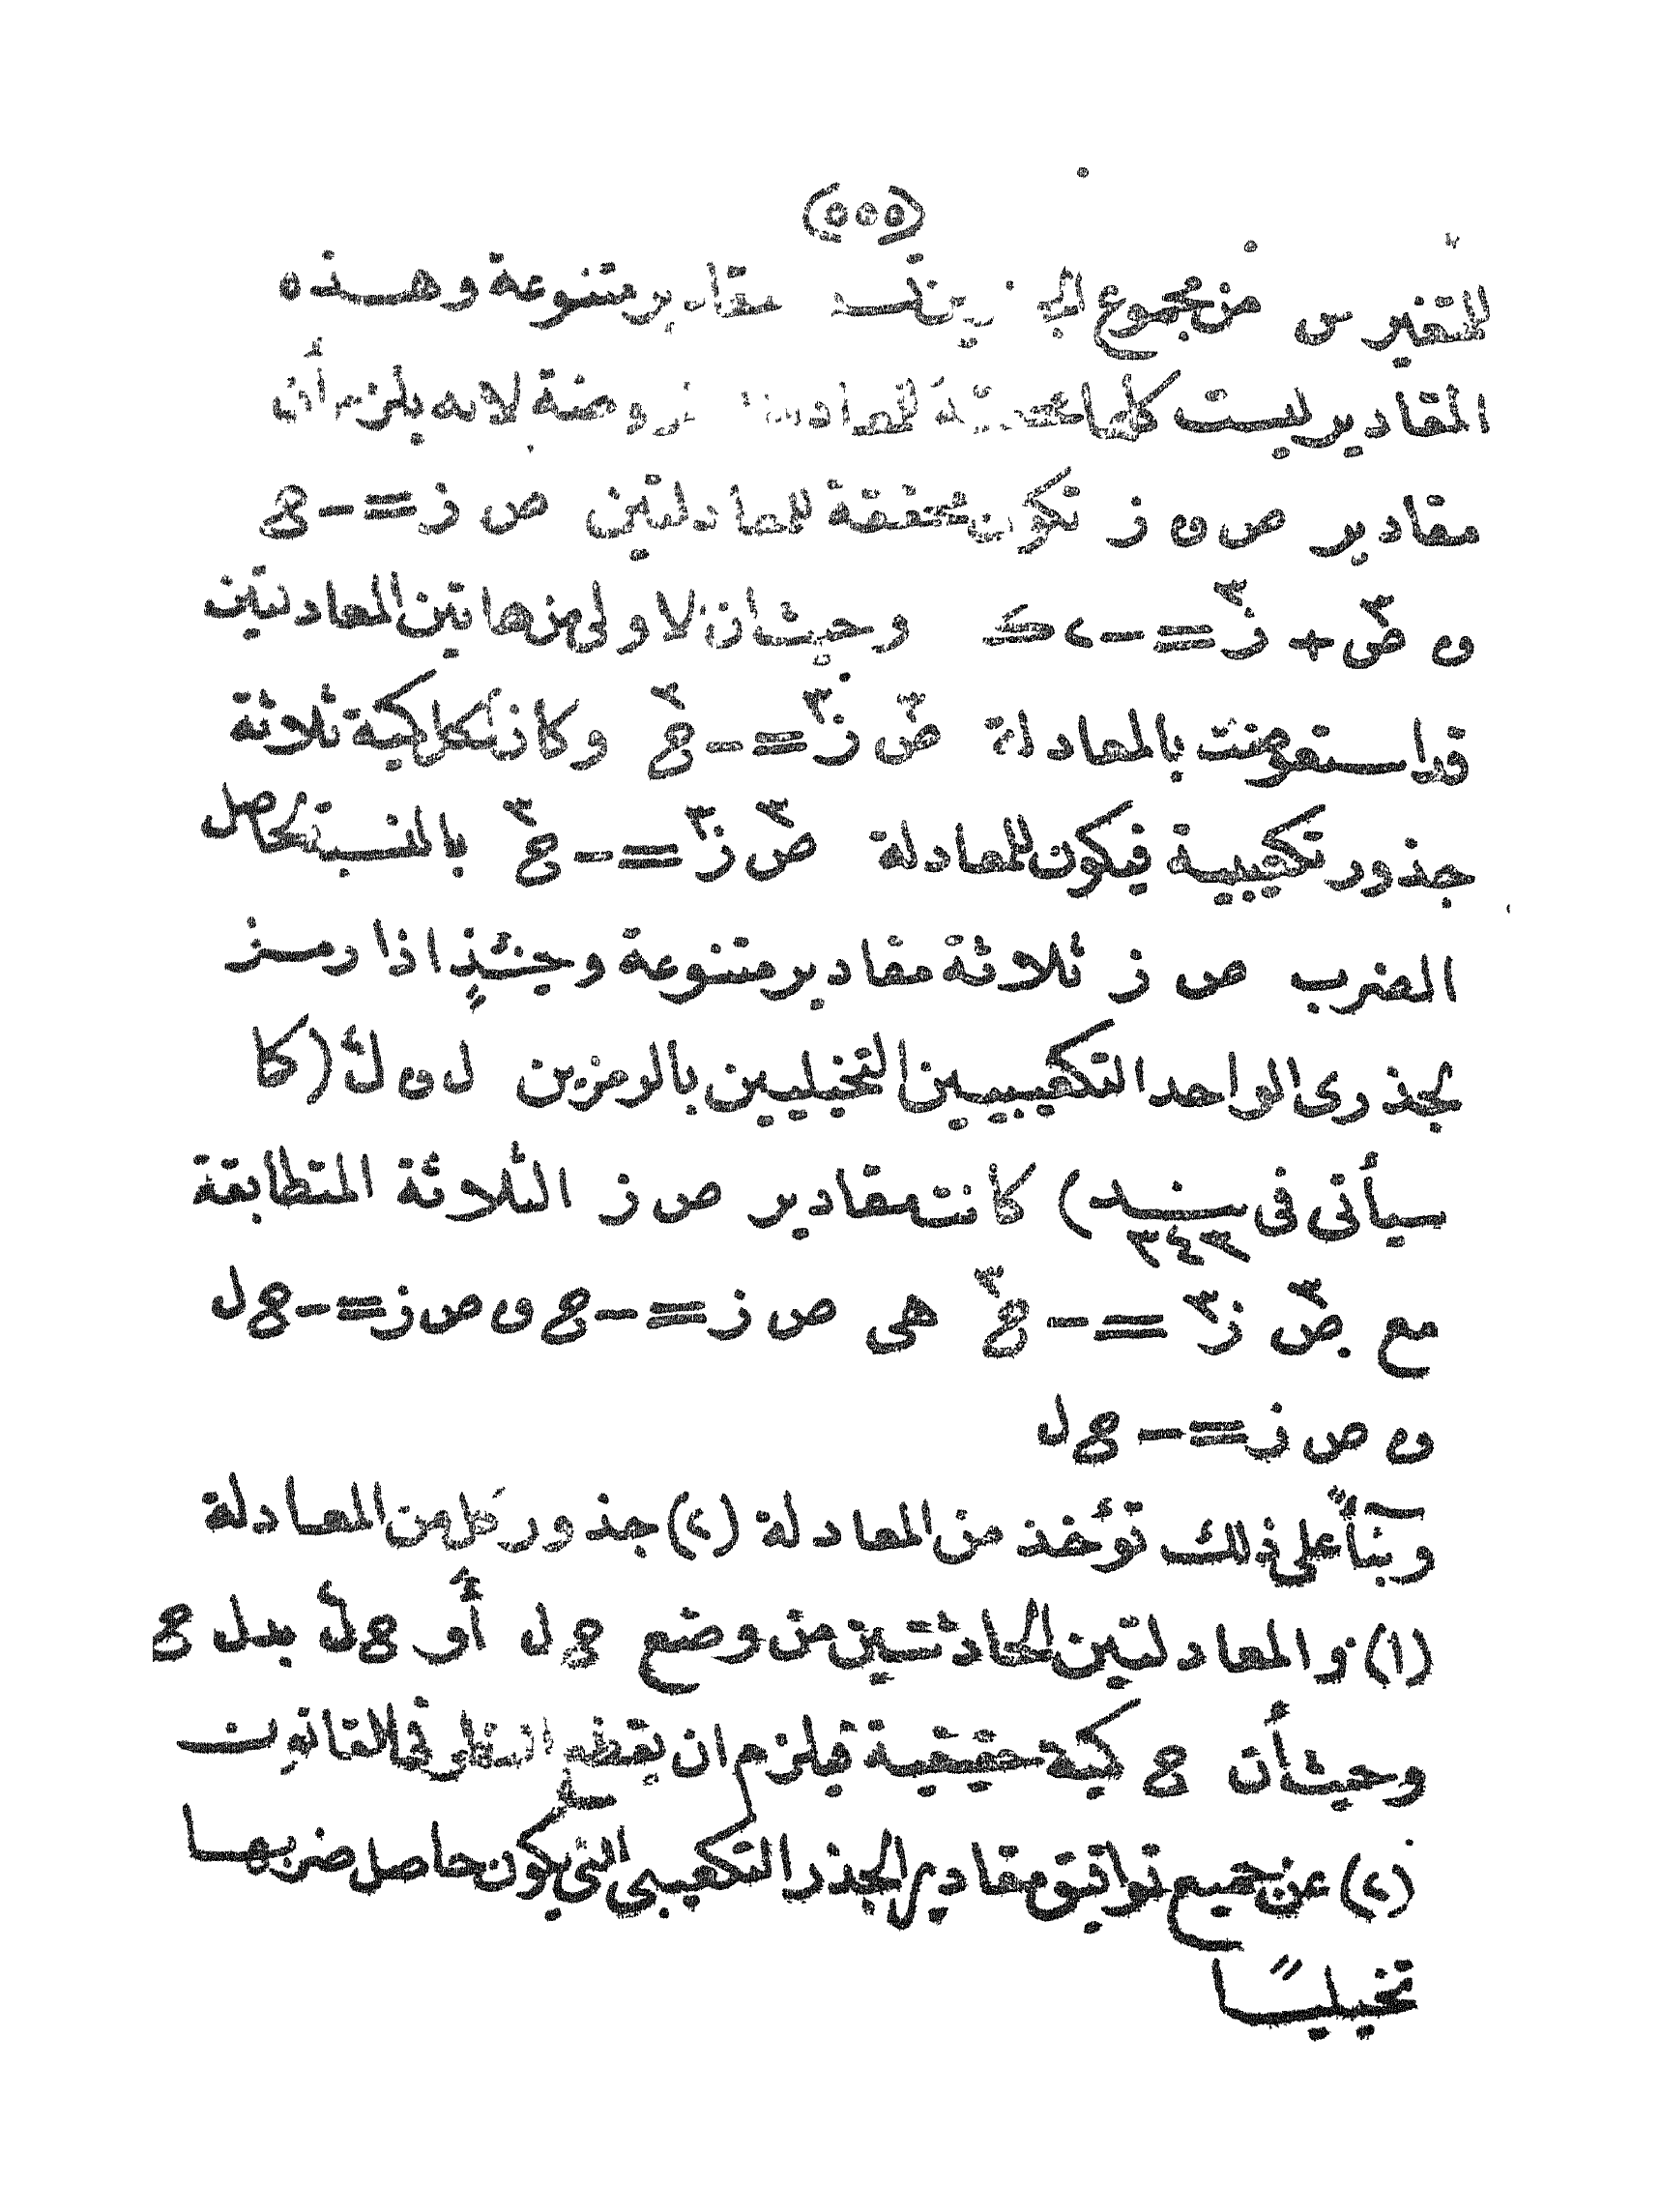 (٥٥٥)
للمتغير س من مجموع مقادير متنوعة وهـذه
المقادير ليست كلها للمعاد روضة لانه يلزم أن
مقادير ص و ز تكون محققة للمعادلتين ص ز = - ج
و ص٣ + ز٣ = - ٢ك وحيث ان الاولى من هاتين المعادلتين
قد استعوضت بالمعادلة ص٣ ز٣ = - ج٣ وكان لكل كمية ثلاثة
جذور تكعيبية فيكون للمعادلة ص٣ ز٣ = - ج٣ بالنسبة لحاصل
الضرب ص ز ثلاثة مقادير متنوعة وحينئذٍ اذا رمـز
لجذرى الواحد التكعيبيين التخيليين بالرمزين ل و ل٢ (كا
سيأتى فى سنـد ٣٤٣) كانت مقادير ص ز الثلاثة المتطابقة
مع ص٣ ز٣ = - ج٣ هى ص ز = - ج و ص ز = - ج ل
و ص ز = - ج ل
وبنآءً على ذلك تؤخذ من المعادلة (٢) جذور كل من المعادلة
(١) والمعادلتين الحادثتين من وضع ج ل أو ج ل٢ بدل ج
وحيث أن ج كمية حقيقية فيلزم ان يقطع النظر فى القانون
(٢) عن جميع توافيق مقادير الجذر التكعيبى التى يكون حاصل ضربهـا
تخيليـًا